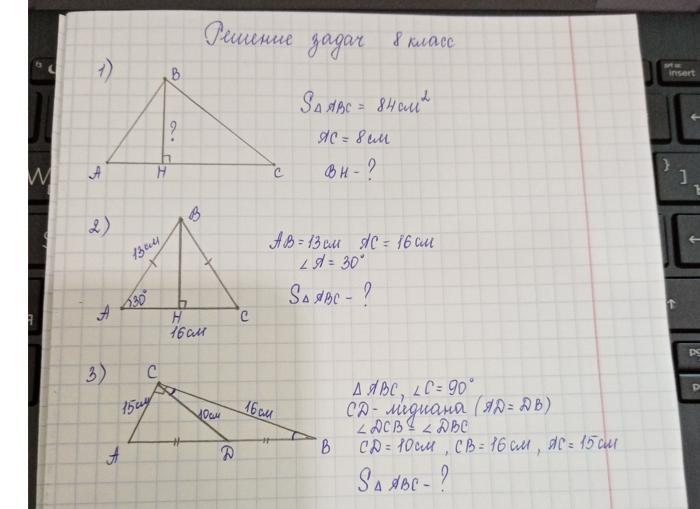 Решение задач 8 класс
1)
B
?
A
H
C
S△ABC = 84 см²
AC = 8 см
BH - ?
2)
B
13 см
30°
A
H
C
16 см
AB = 13 см AC = 16 см
∠A = 30°
S△ABC - ?
3)
C
15 см
10 см
16 см
A
D
B
△ABC, ∠C = 90°
CD - медиана (AD = DB)
∠DCB = ∠DBC
CD = 10 см, CB = 16 см, AC = 15 см
S△ABC - ?
insert